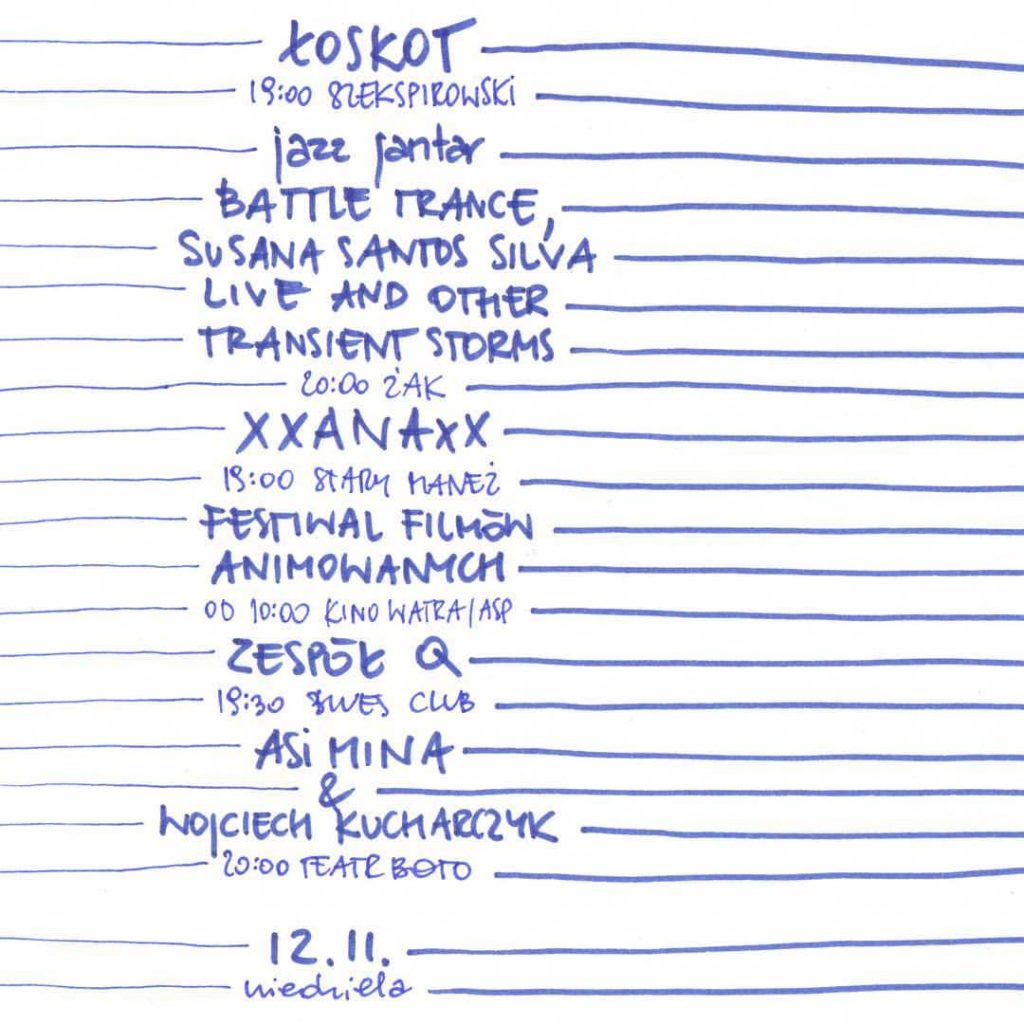 ŁOSKOT
19:00 SZEKSPIROWSKI
jazz jantar
BATTLE TRANCE,
SUSANA SANTOS SILVA
LIVE AND OTHER
TRANSIENT STORMS
20:00 ŻAK
XXANAXX
19:00 STARY MANEŻ
FESTIWAL FILMÓW
ANIMOWANYCH
OD 10:00 KINO WATRA/ASP
ZESPÓŁ Q
19:30 BLUES CLUB
ASi MINA
&
WOJCIECH KUCHARCZYK
20:00 TEATR BOTO
12.11.
niedziela